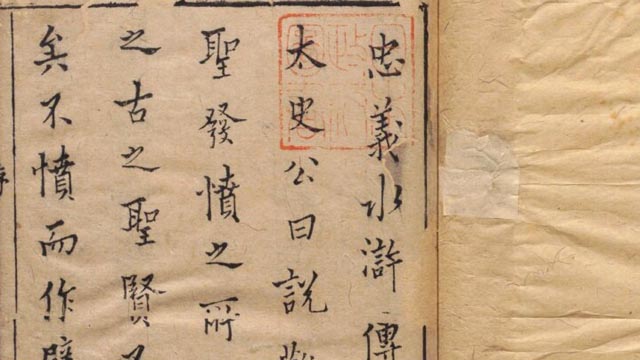 忠義水滸傳
太史公曰說
聖發憤之所
之古之聖賢不
矣不憤而作譬